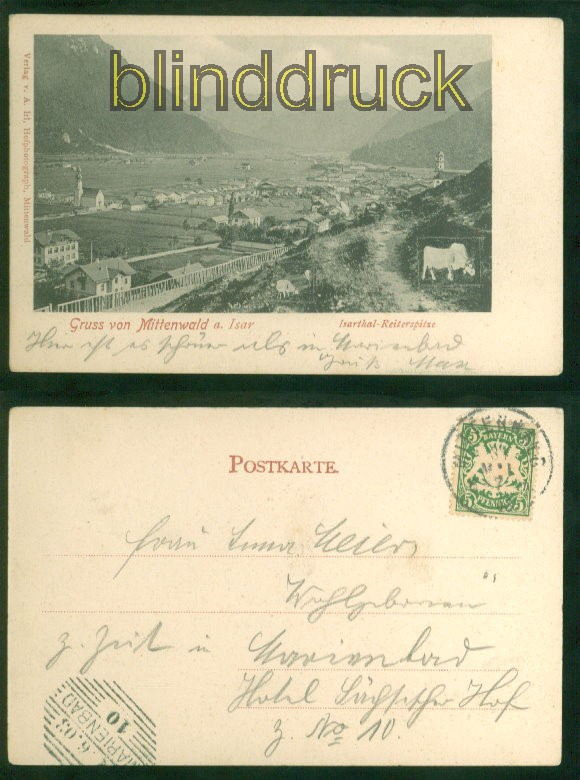 blinddruck
Verlag v. A. Irl, Hofphotograph, Mittenwald.
Gruss von Mittenwald a. Isar
Isarthal-Reiterspitze
Hier ist es schöner als in Marienbad
Gruß Max
POSTKARTE.
MITTENWALD
BAYERN
5 5
PFENNIG
Frau Anna Meier
Wohlgeboren
z. Zeit in Marienbad
Hotel Sächsischer Hof
z. No 10.
MARIENBAD
6.03
10